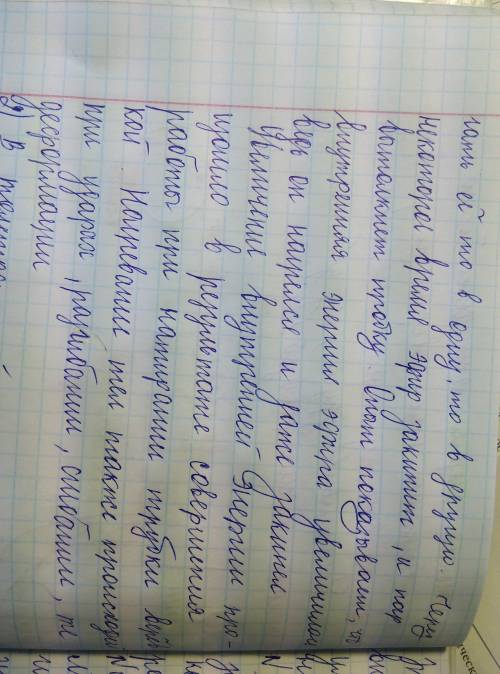 гать её то в одну, то в другую. Через
некоторое время эфир закипит, и пар
вытолкнет пробку. Опыт показывает, что
внутренняя энергия эфира увеличилась
ведь он нагрелся и даже закипел
Увеличение внутренней энергии про-
изошло в результате совершения
работы при натирании трубки
кой Нагревание тел также происходит
при ударах, разгибании, сгибании, т.е
деформации
2) В